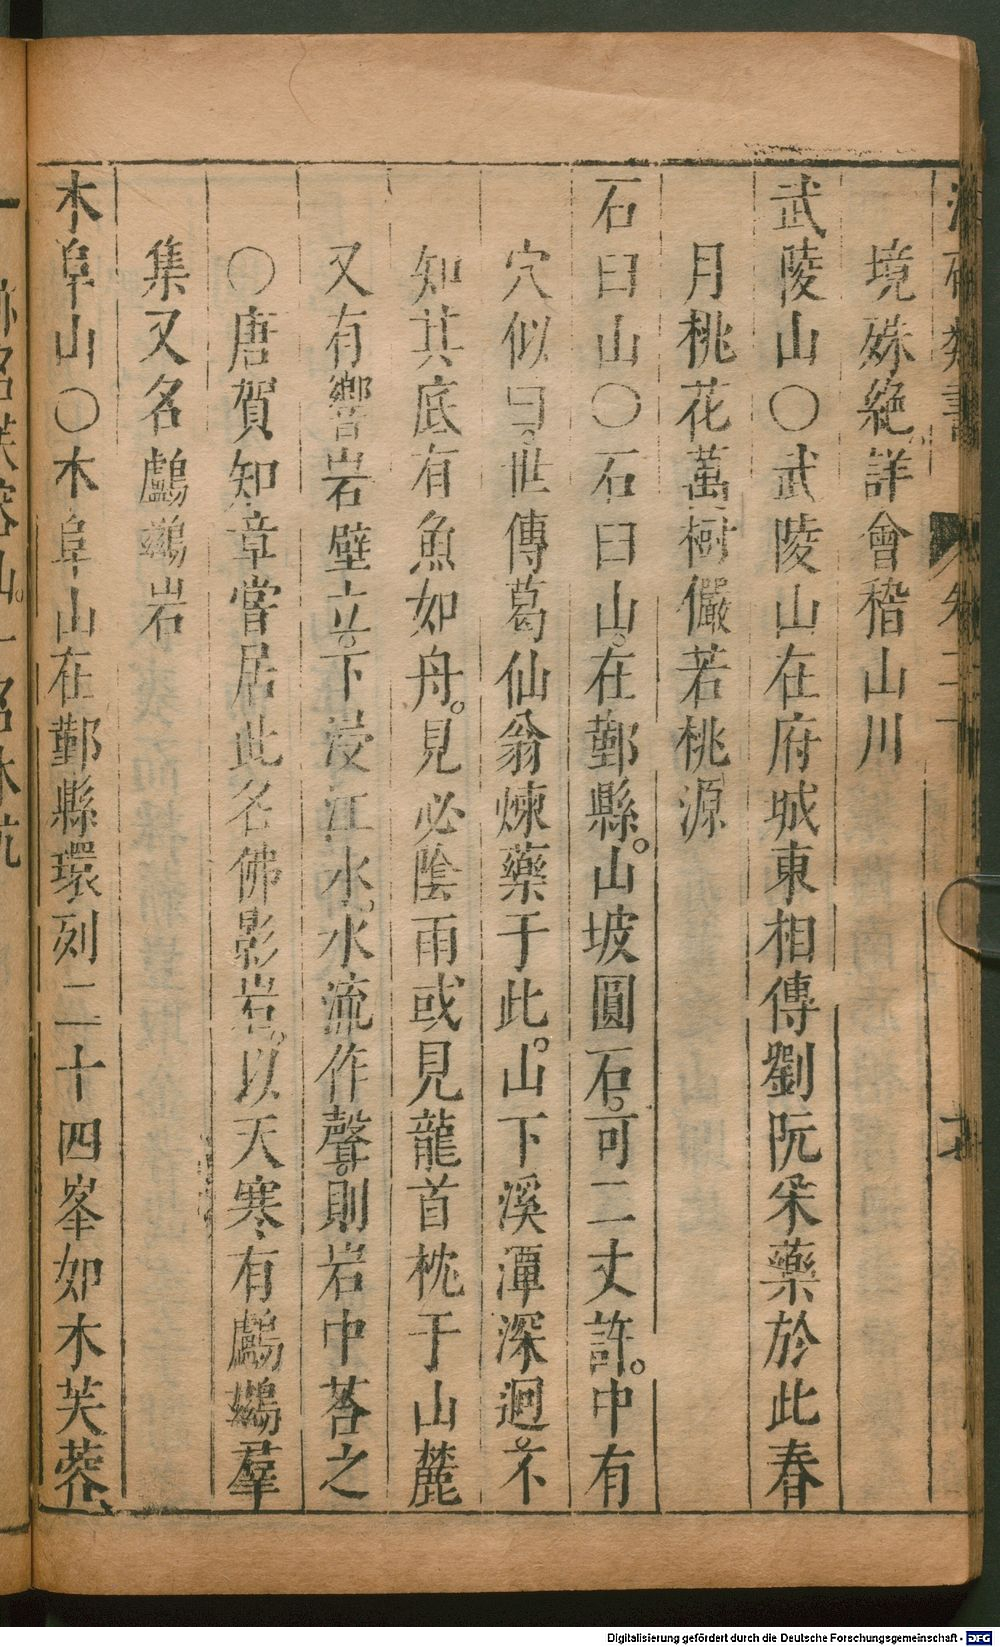 境殊絶。詳會稽山川
武陵山○武陵山在府城東相傳劉阮采藥於此春
月桃花萬樹儼若桃源
石臼山○石臼山。在鄞縣。山坡圓石。可二丈許。中有
穴似臼。世傳葛仙翁煉藥于此。山下溪潭深迴。不
知其底有魚如舟。見必陰雨或見龍首枕于山麓
又有響岩壁立。下浸江水。水流作聲。則岩中荅之
○唐賀知章嘗居此名佛影岩。以天寒有鸕鷀羣
集又名鸕鷀岩
木阜山○木阜山在鄞縣環列二十四峯如木芙蓉
Digitalisierung gefördert durch die Deutsche Forschungsgemeinschaft - DFG